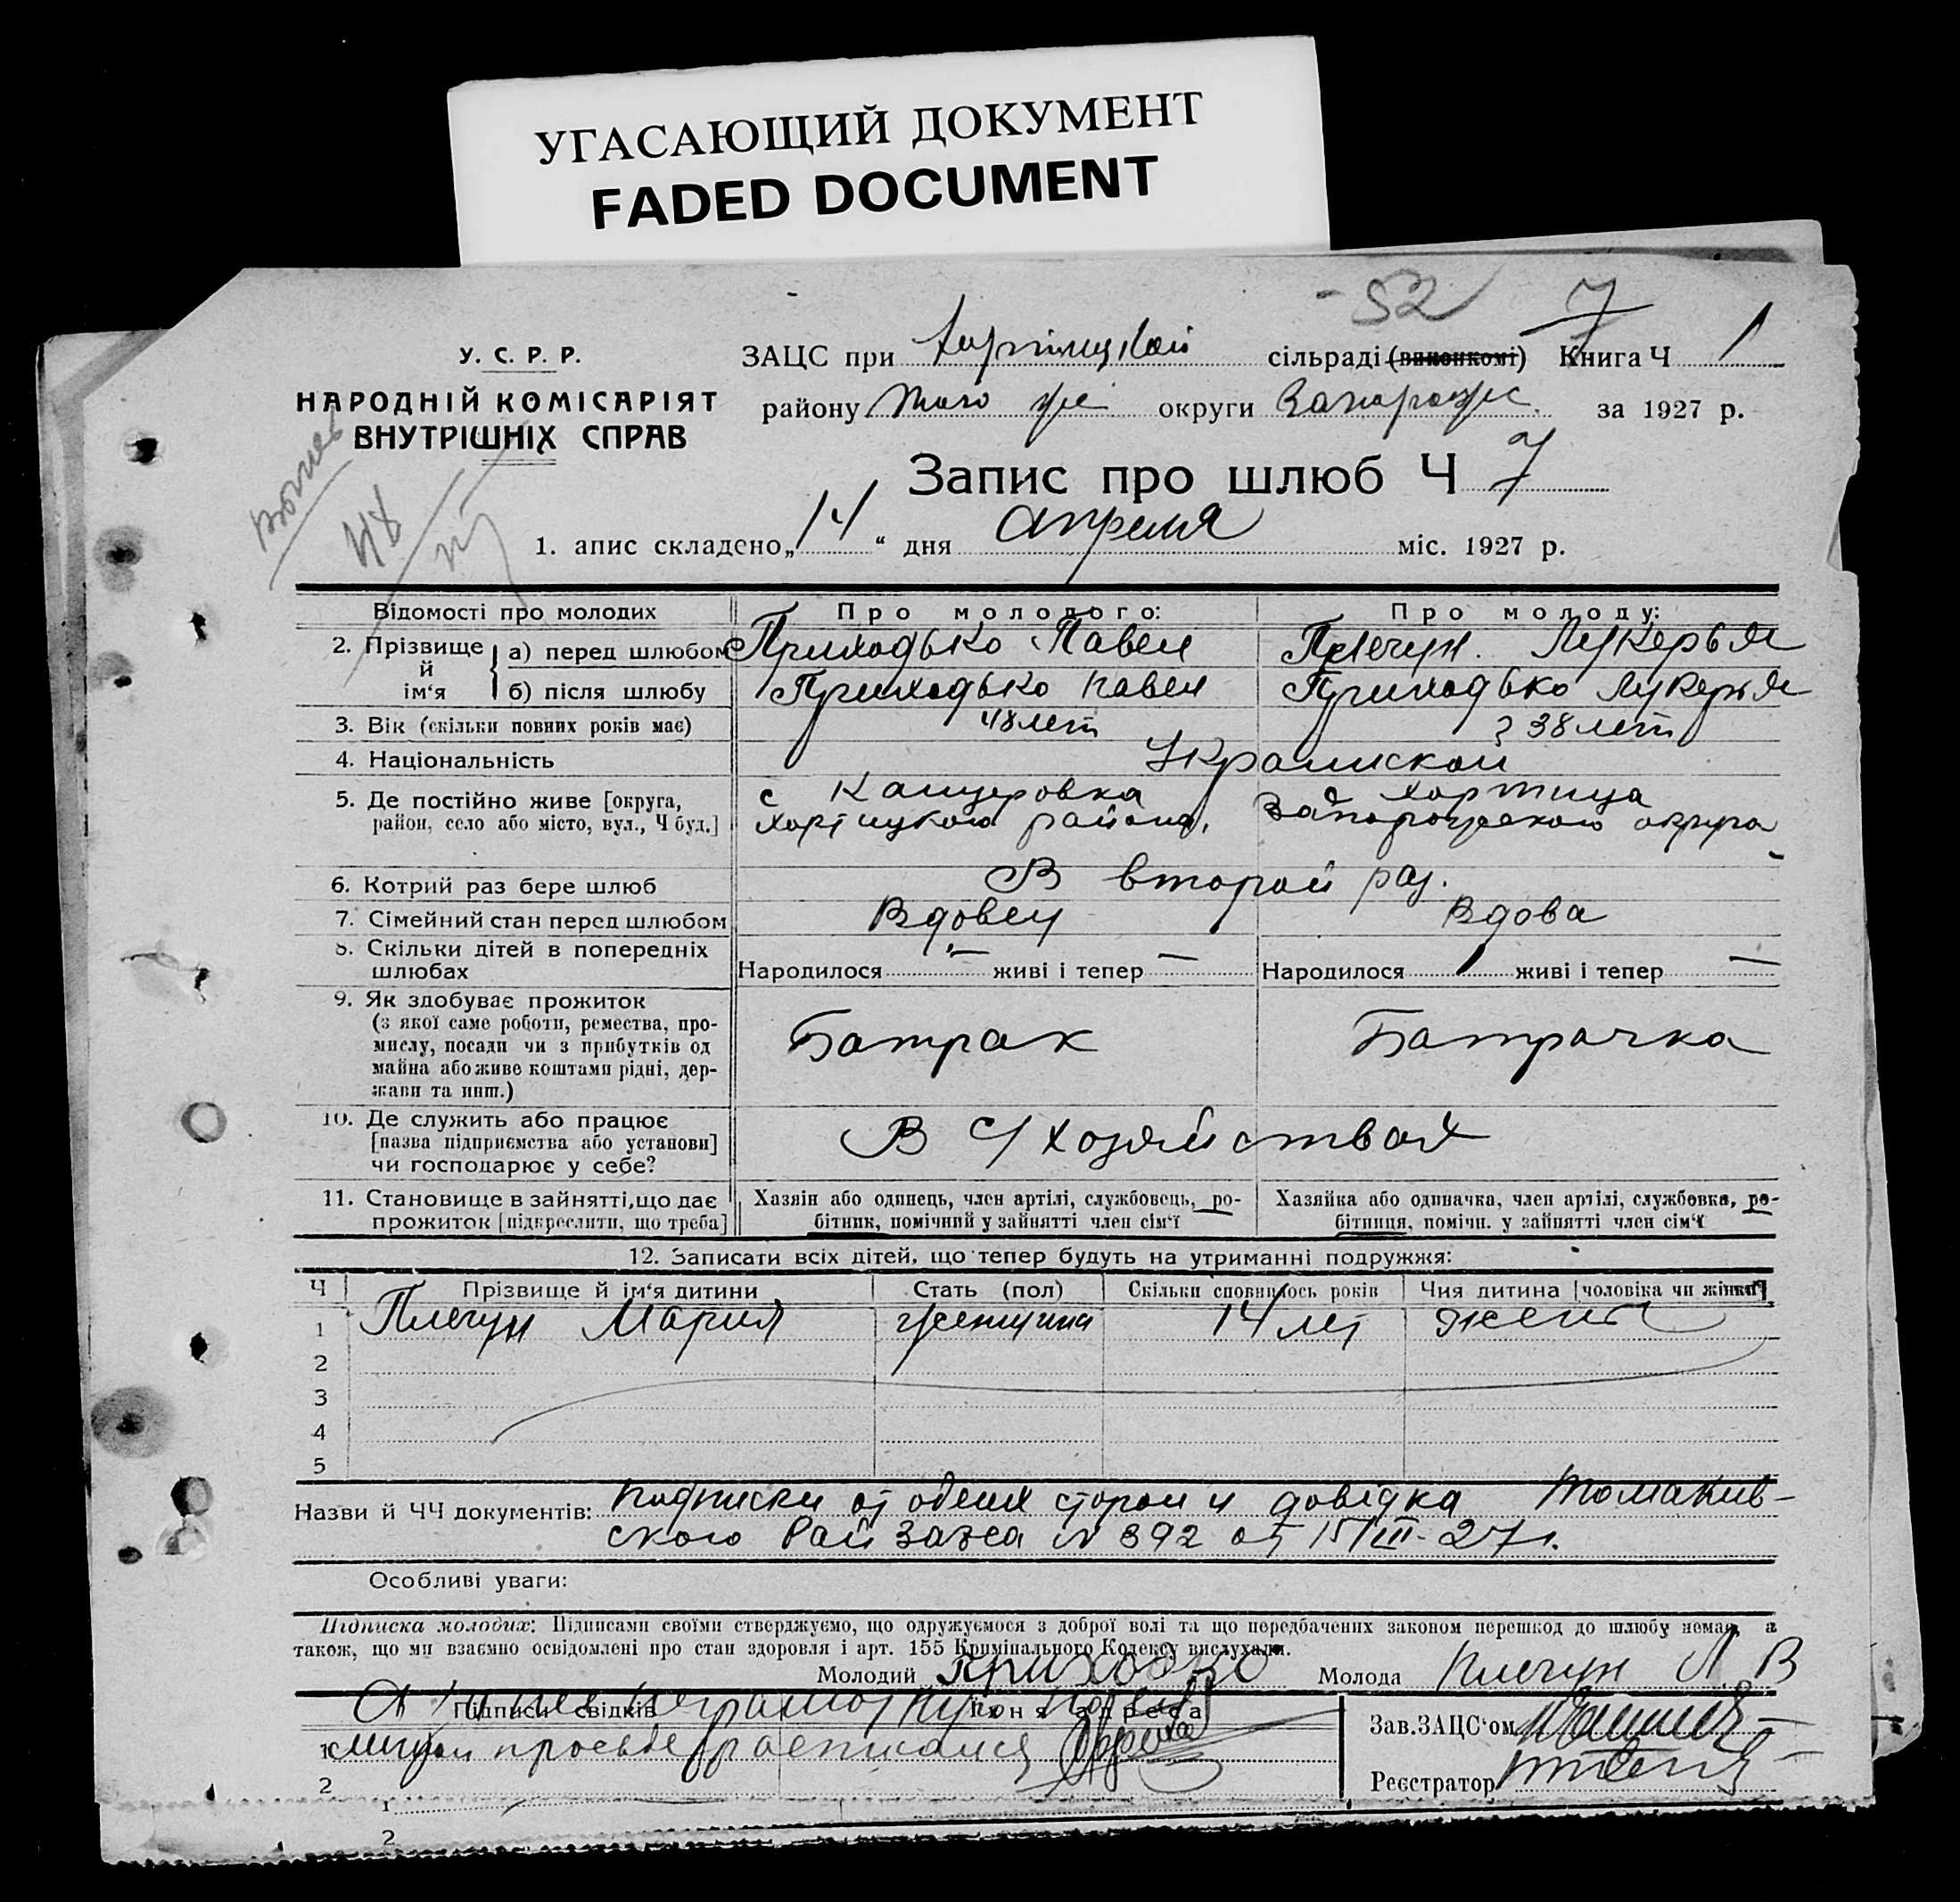 УГАСАЮЩИЙ ДОКУМЕНТ
FADED DOCUMENT
-52 7
У. С. Р. Р.
НАРОДНІЙ КОМІСАРІЯТ
ВНУТРІШНІХ СПРАВ
ЗАЦС при сільраді (виконкомі) Книга Ч 1
району того же округи Запорожс. за 1927 р.
Запис про шлюб Ч 7
48
1. апис складено „14“ дня апреля міс. 1927 р.
Відомості про молодих Про молодого: Про молоду:
2. Прізвище й ім‘я а) перед шлюбом Приходько Павел Плечун. Лукерья
б) після шлюбу Приходько Павел Приходько Лукерья
3. Вік (скільки повних років має) 48 лет 38 лет
4. Національність Украинской
5. Де постійно живе [округа, район, село або місто, вул., Ч буд.] с Канцеровка Хортицкого района, Хортица Запорожского округа
6. Котрий раз бере шлюб В второй раз.
7. Сімейний стан перед шлюбом Вдовец Вдова
8. Скільки дітей в попередніх шлюбах Народилося — живі і тепер — Народилося 1 живі і тепер —
9. Як здобуває прожиток
(з якої саме роботи, ремества, про-
мислу, посади чи з прибутків од
майна або живе коштами рідні, дер-
жави та инш.) Батрак Батрачка
10. Де служить або працює
[назва підприємства або установи]
чи господарює у себе? В с/хозяйствах
11. Становище в зайнятті, що дає
прожиток [підкреслити, що треба]
Хазяін або одинець, член артілі, службовець, ро-
бітник, помічний у зайнятті член сім‘ї
Хазяйка або одиначка, член артілі, службовка, ро-
бітниця, помічн. у зайнятті член сім‘ї
12. Записати всіх дітей, що тепер будуть на утриманні подружжя:
Ч Прізвище й ім‘я дитини Стать (пол) Скільки сповнилось років Чия дитина [чоловіка чи жінки]
1 Плечун Мария женщина 14 лет жены
2
3
4
5
Назви й ЧЧ документів: Подписки от обеих сторон и довідка Томаків-
ского Рай Загса N 392 от 15/III-27 г.
Особливі уваги:
Підписка молодих: Підписами своїми стверджуємо, що одружуємося з доброї волі та що передбачених законом перешкод до шлюбу немає, а
також, що ми взаємно освідомлені про стан здоровля і арт. 155 Кримінального Кодексу вислухали.
Молодий Приходько Молода Плечун Л. В
Підписи свідків Їхня адреса
неграмотную
личной просьбе расписался
Зав. ЗАЦС‘ом
Реєстратор
1
2
1
2